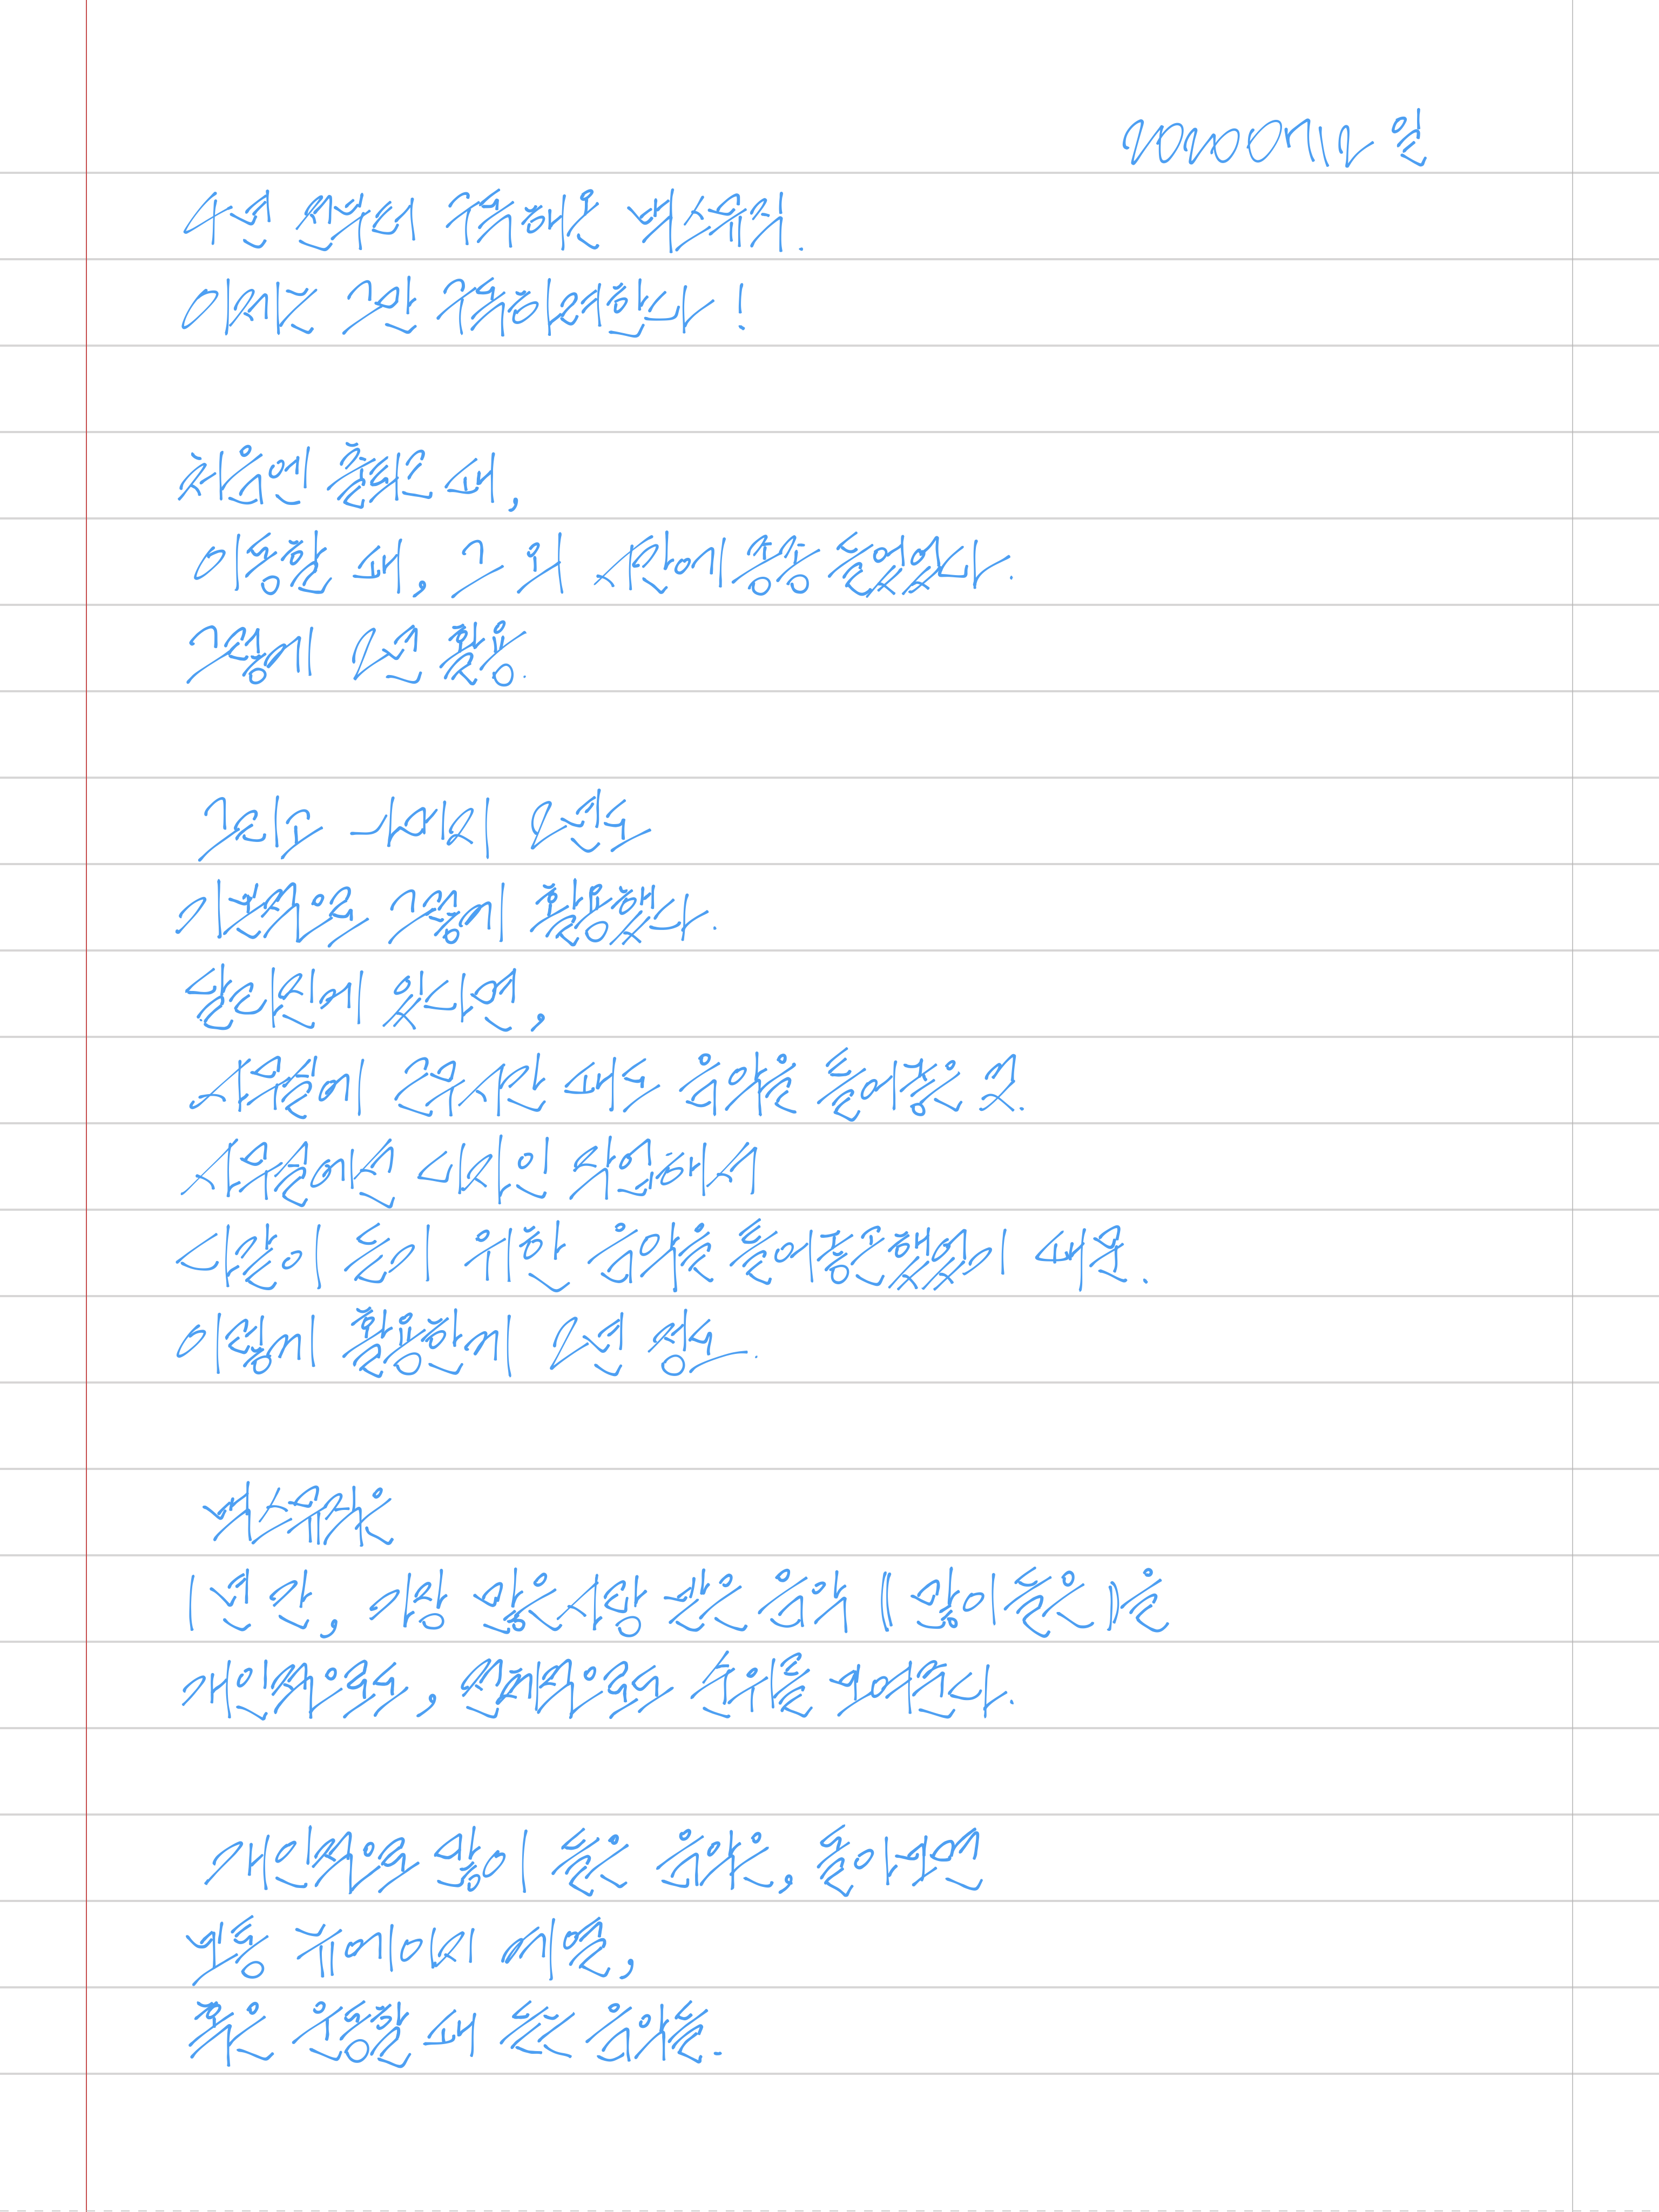 4년 씩이나 구독해온 벅스뮤직.
이제는 그만 구독하려한다!
처음엔 출퇴근 때,
이동할 때, 그 외 시간에 종종 들었었다.
그렇게 2년 활용.
그리고 나머지 2년도
기본적으로 그렇게 활용했다.
달라진게 있다면,
사무실에 근무시간 때도 음악을 들어줬던 것.
사무실에선 디자인 작업하며
다같이 듣기 위한 음악을 틀어줬었기 때문.
이렇게 활용한게 2년 정도.
벅스뮤직은
1년 간, 가장 많은 사랑 받은 음악 (많이 들은)을
개인적으로도, 전체적으로도 순위를 보여준다.
개인적으로 많이 들은 음악은, 돌아보면
보통 뉴에이지 계열,
혹은 운동할 때 듣는 음악들.